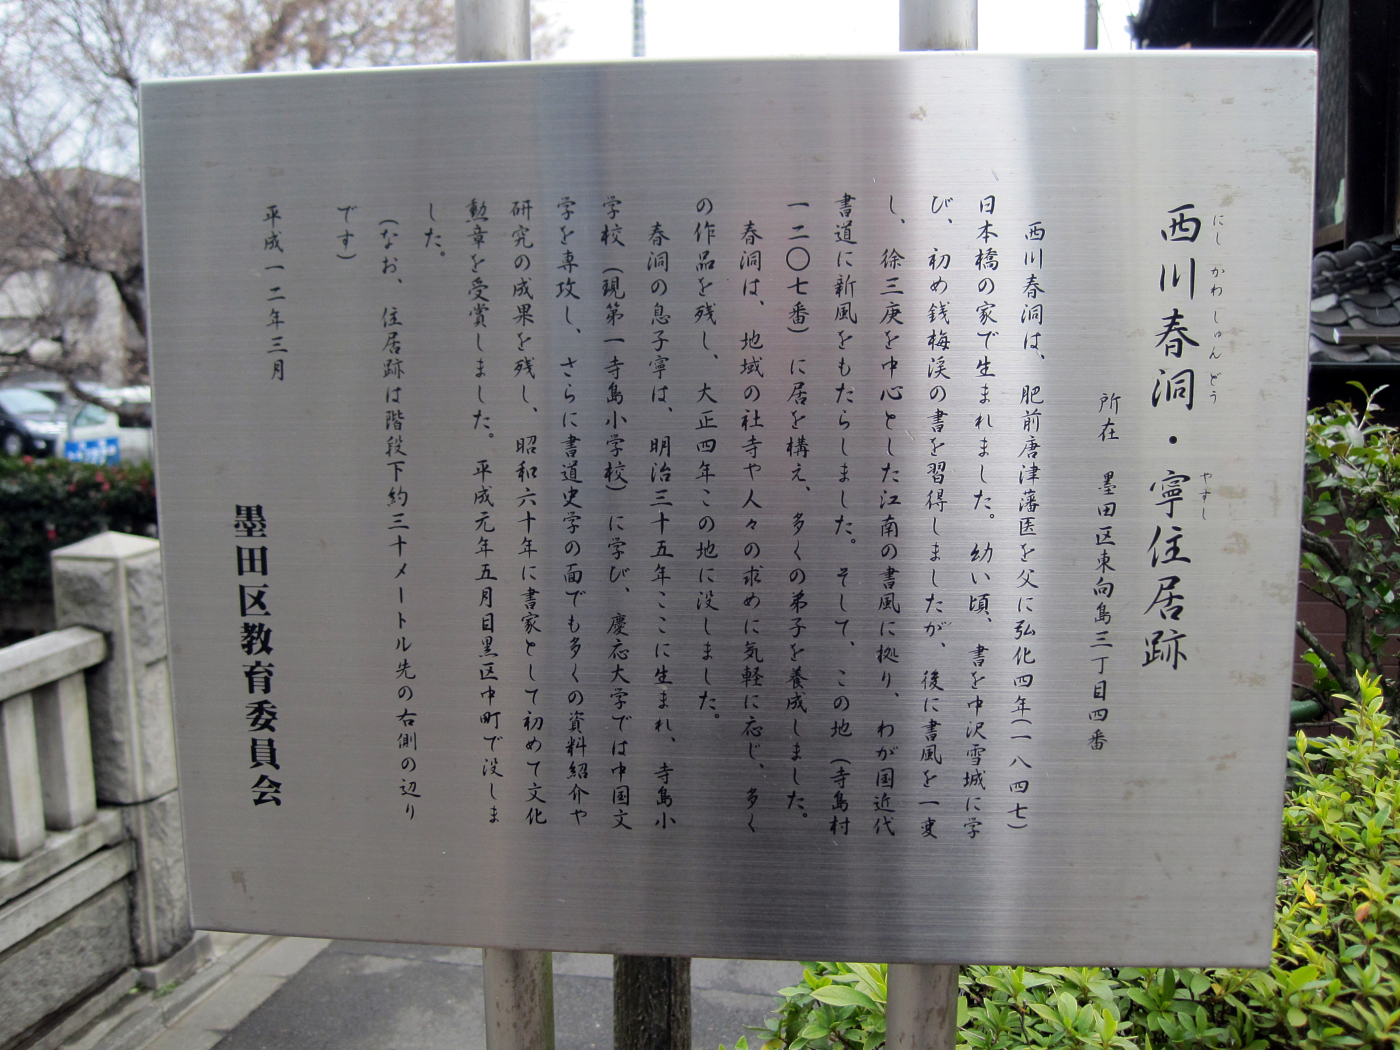 西川春洞・寧住居跡
にし かわ しゅんどう やすし
所在 墨田区東向島三丁目四番
西川春洞は、肥前唐津藩医を父に弘化四年(一八四七)
日本橋の家で生まれました。幼い頃、書を中沢雪城に学
び、初め銭梅渓の書を習得しましたが、後に書風を一変
し、徐三庚を中心とした江南の書風に拠り、わが国近代
書道に新風をもたらしました。そして、この地(寺島村
一二〇七番)に居を構え、多くの弟子を養成しました。
春洞は、地域の社寺や人々の求めに気軽に応じ、多く
の作品を残し、大正四年この地に没しました。
春洞の息子寧は、明治三十五年ここに生まれ、寺島小
学校(現第一寺島小学校)に学び、慶応大学では中国文
学を専攻し、さらに書道史学の面でも多くの資料紹介や
研究の成果を残し、昭和六十年に書家として初めて文化
勲章を受賞しました。平成元年五月目黒区中町で没しま
した。
(なお、住居跡は階段下約三十メートル先の右側の辺り
です)
平成一二年三月
墨田区教育委員会